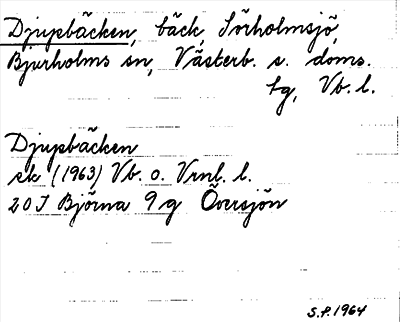 Djupbäcken, bäck, Sörholmsjö,
Bjurholms sn, Västerb. s. doms.
tg, Vb. l.
Djupbäcken
sk (1963) Vb. o. Vrnl. l.
20 J Björna 9 g Översjön
S.P. 1964